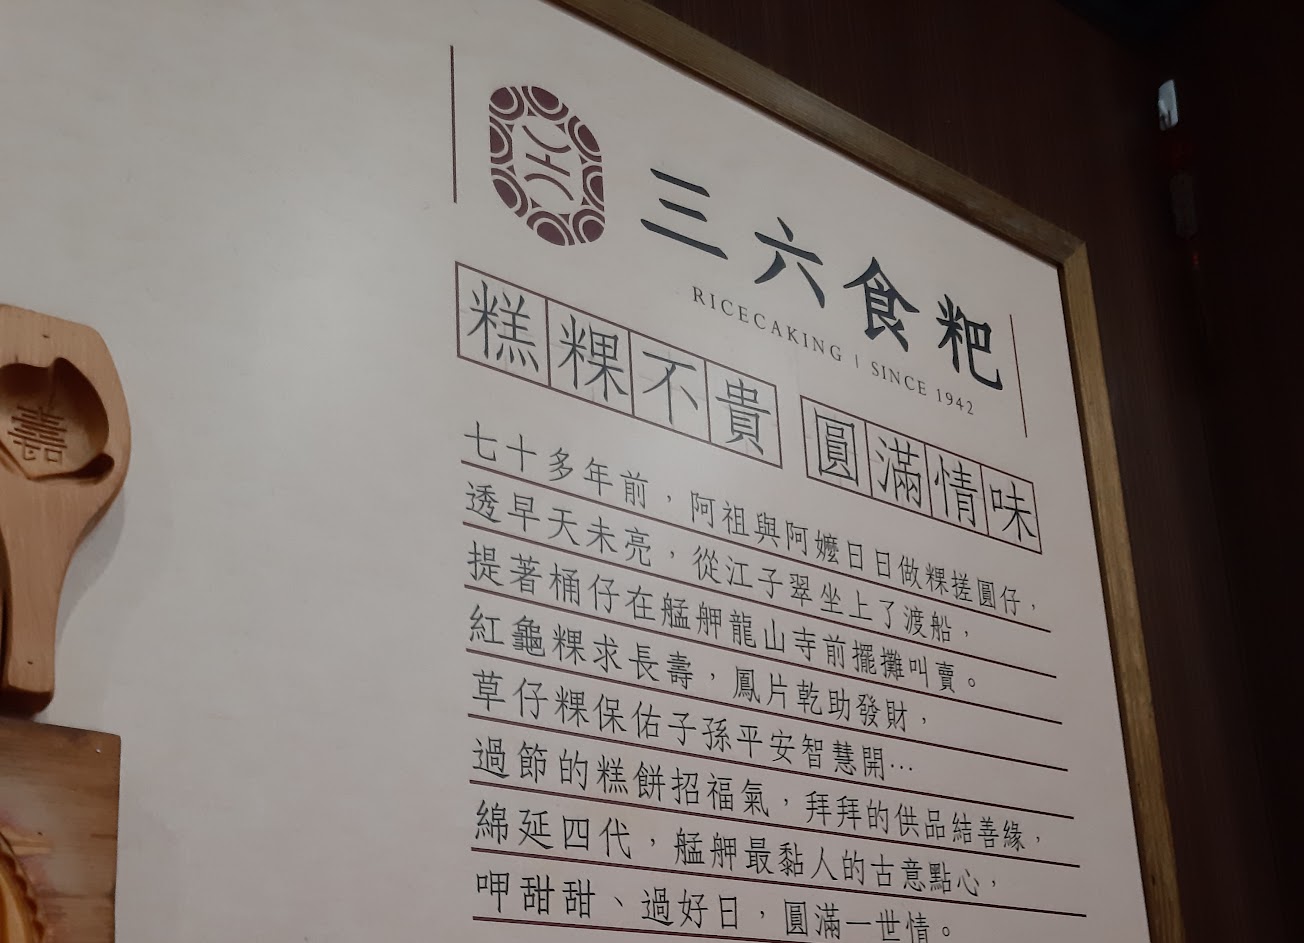 三六食粑
RICECAKING | SINCE 1942
糕粿不貴 圓滿情味
七十多年前，阿祖與阿嬤日日做粿搓圓仔，
透早天未亮，從江子翠坐上了渡船，
提著桶仔在艋舺龍山寺前擺攤叫賣。
紅龜粿求長壽，鳳片乾助發財，
草仔粿保佑子孫平安智慧開…
過節的糕餅招福氣，拜拜的供品結善緣，
綿延四代，艋舺最黏人的古意點心，
呷甜甜、過好日，圓滿一世情。